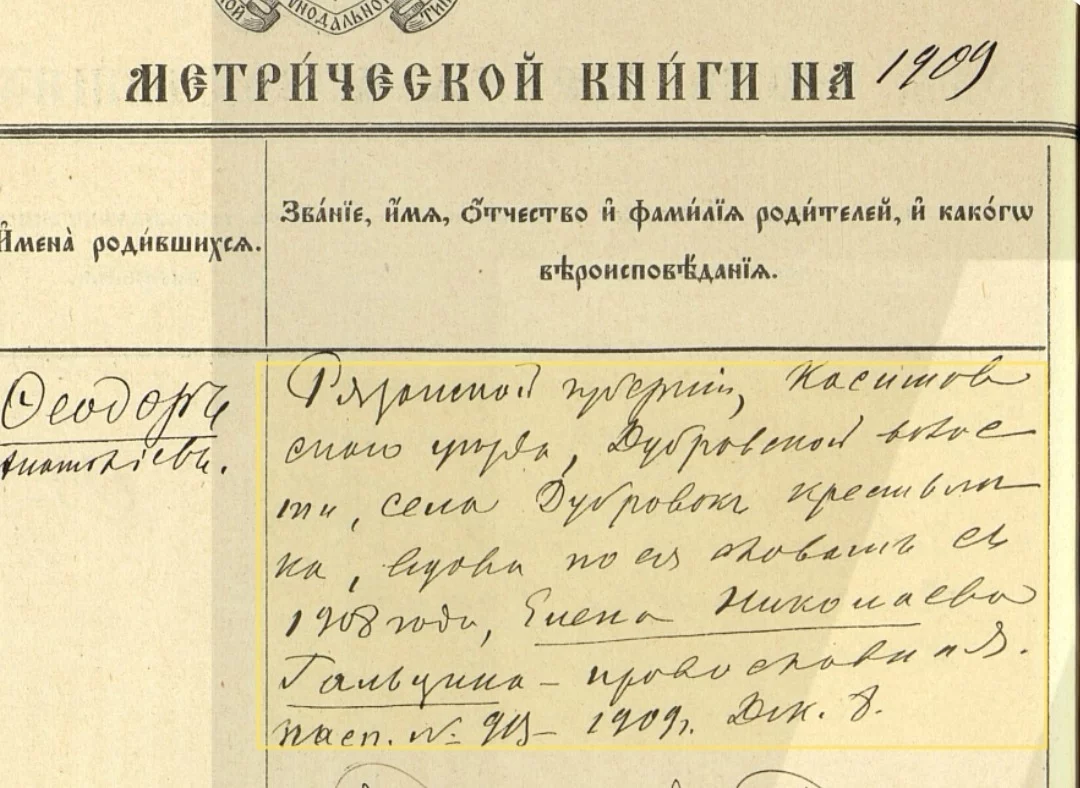 НОДАЛЬНО
МЕТРИ́ЧЕСКОЙ КНИ́ГИ НА 1909
И҆мена̀ роди́вшихся.
Зва́нїе, и҆́мѧ, ѻ҆́тчество и҆ фами́лїѧ роди́телей, и҆ како́гѡ
вѣроисповѣ́данїѧ.
Ѳеодоръ
Анатоліевъ.
Рязанской губерніи, Касимов
скаго уѣзда, Дубровской волос
ти, села Дубровокъ крестьян
ка, вдова по ея словамъ съ
1908 года, Елена Николаева
Гальцина – православная.
пасп. № 1909г. Дек. 8.